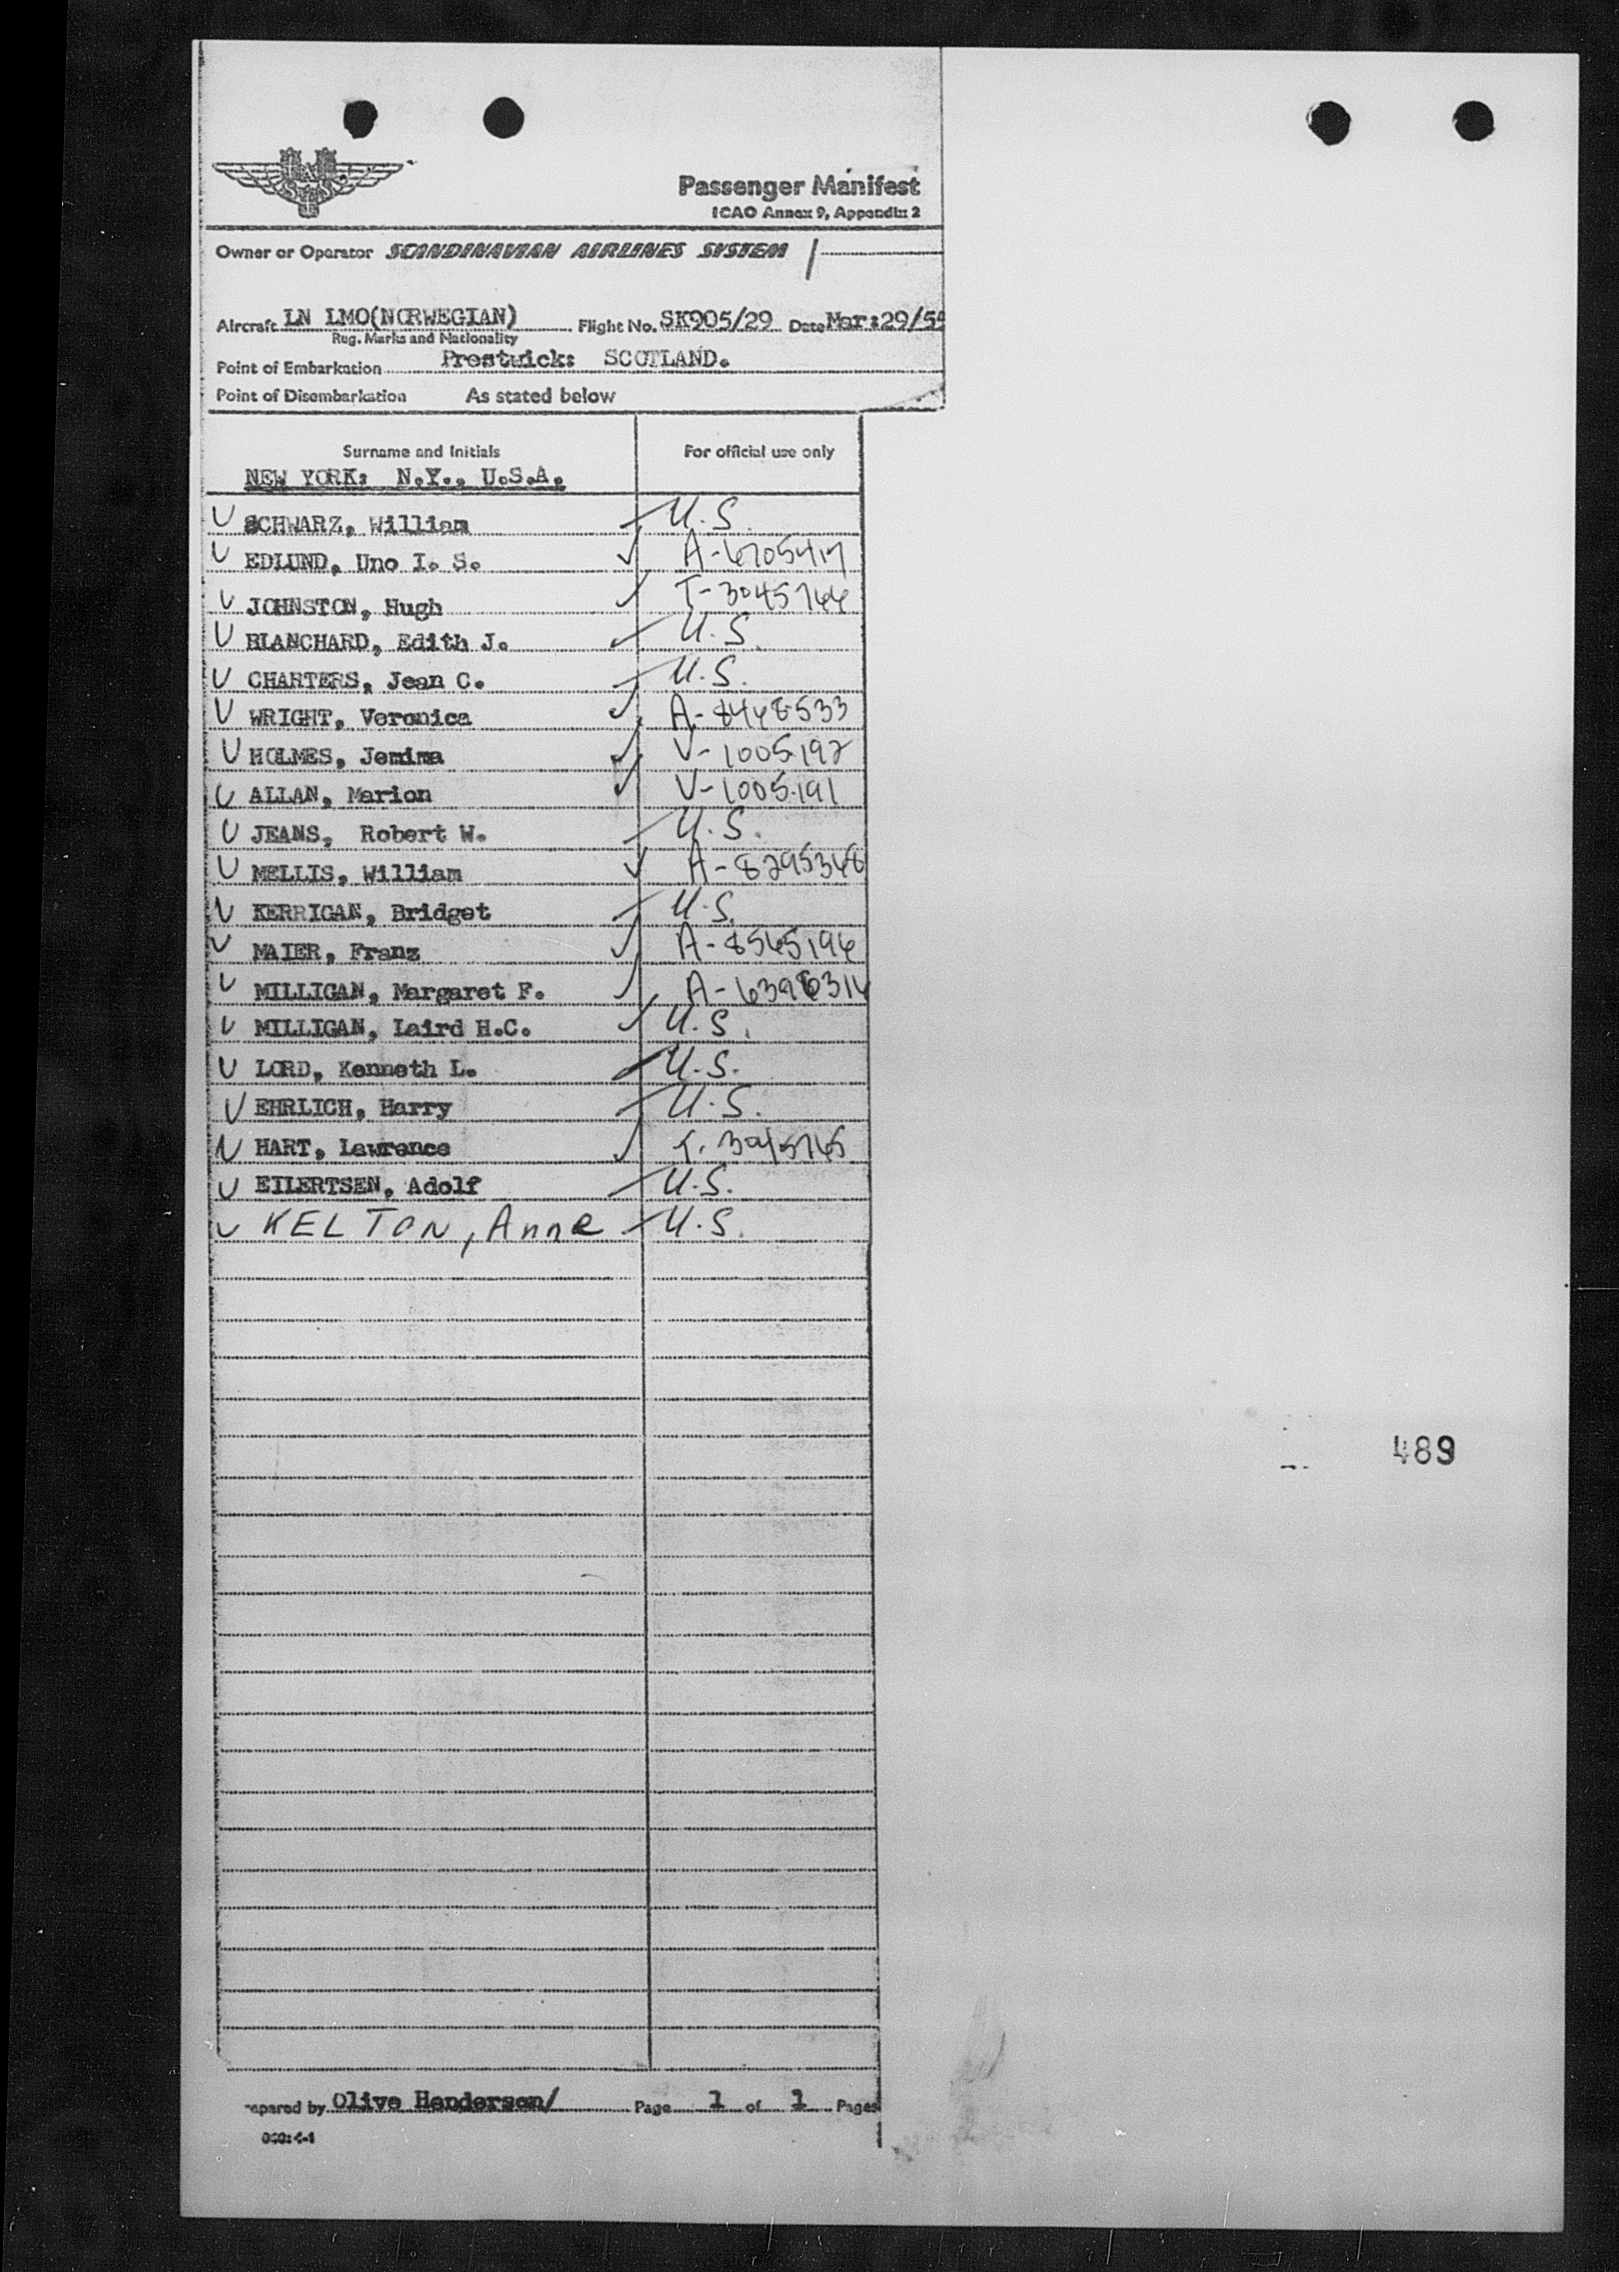 SAS
Passenger Manifest
ICAO Annex 9, Appendix 2
Owner or Operator SCANDINAVIAN AIRLINES SYSTEM
Aircraft LN LMO(NORWEGIAN) Flight No. SK905/29 Date Mar:29/5
Reg. Marks and Nationality
Point of Embarkation Prestwick: SCOTLAND.
Point of Disembarkation As stated below
Surname and Initials For official use only
NEW YORK: N.Y., U.S.A.
SCHWARZ, William U.S.
EDLUND, Uno I. S. A-6705417
JOHNSTON, Hugh T-3045744
BLANCHARD, Edith J. U.S.
CHARTERS, Jean C. U.S.
WRIGHT, Veronica A-8448533
HOLMES, Jemima V-1005192
ALLAN, Marion V-1005191
JEANS, Robert W. U.S.
MELLIS, William A-8295348
KERRIGAN, Bridget U.S.
MAIER, Franz A-8545194
MILLIGAN, Margaret F.
MILLIGAN, Laird H.C. U.S.
LORD, Kenneth L. U.S.
EHRLICH, Harry U.S.
HART, Lawrence T-3045745
EILERTSEN, Adolf U.S.
KELTON, Anne U.S.
489
epared by Olive Henderson/ Page 1 of 1 Pages